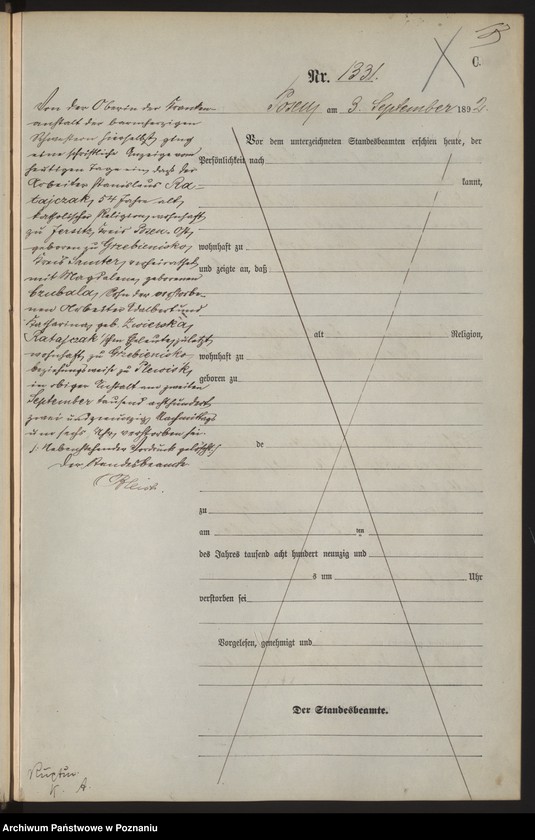 C.
Nr. 1331.
Posen am 3. September 1892.
Von der Oberin der Kranken-
anstalt der barmherzigen
Schwestern hierselbst ging
eine schriftliche Anzeige vom
heutigen Tage ein, daß der
Arbeiter Stanislaus Ra-
tajczak, 54 Jahre alt,
katholischer Religion, wohnhaft
zu Jersitz, Kreis Posen-Ost,
geboren zu Grzebienisko,
Kreis Samter, verheirathet
mit Magdalena, geborenen
Czubala, Sohn der verstorbe-
nen Arbeiter Adalbert und
Katharina, geb.
Ratajczak'schen Eheleute, zuletzt
wohnhaft zu Grzebienisko
beziehungsweise zu Plewisk,
in obiger Anstalt am zweiten
September tausend achthundert
zwei und neunzig Nachmittags
um sechs Uhr, verstorben sei.
Nebenstehender Vordruck gelöscht
Der Standesbeamte
Vor dem unterzeichneten Standesbeamten erschien heute, der
Persönlichkeit nach
kannt,
wohnhaft zu
und zeigte an, daß
alt Religion,
wohnhaft zu
geboren zu
de
zu
am ten
des Jahres tausend acht hundert neunzig und
s um Uhr
verstorben sei
Vorgelesen, genehmigt und
Der Standesbeamte.
Archiwum Państwowe w Poznaniu